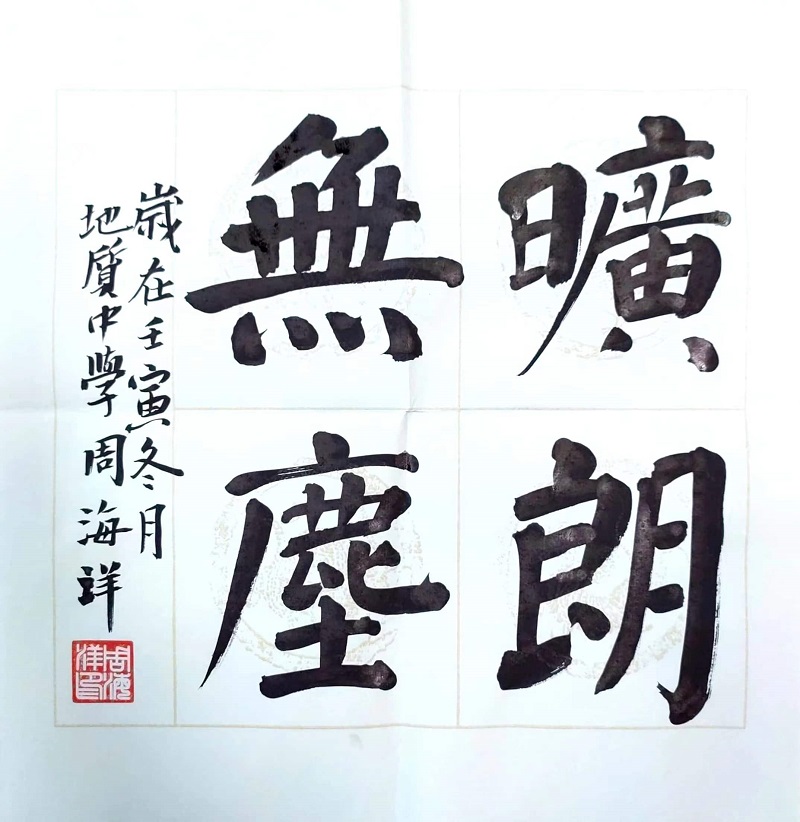 曠朗
無塵
歲在壬寅冬月
地质中學周海祥
周海祥印